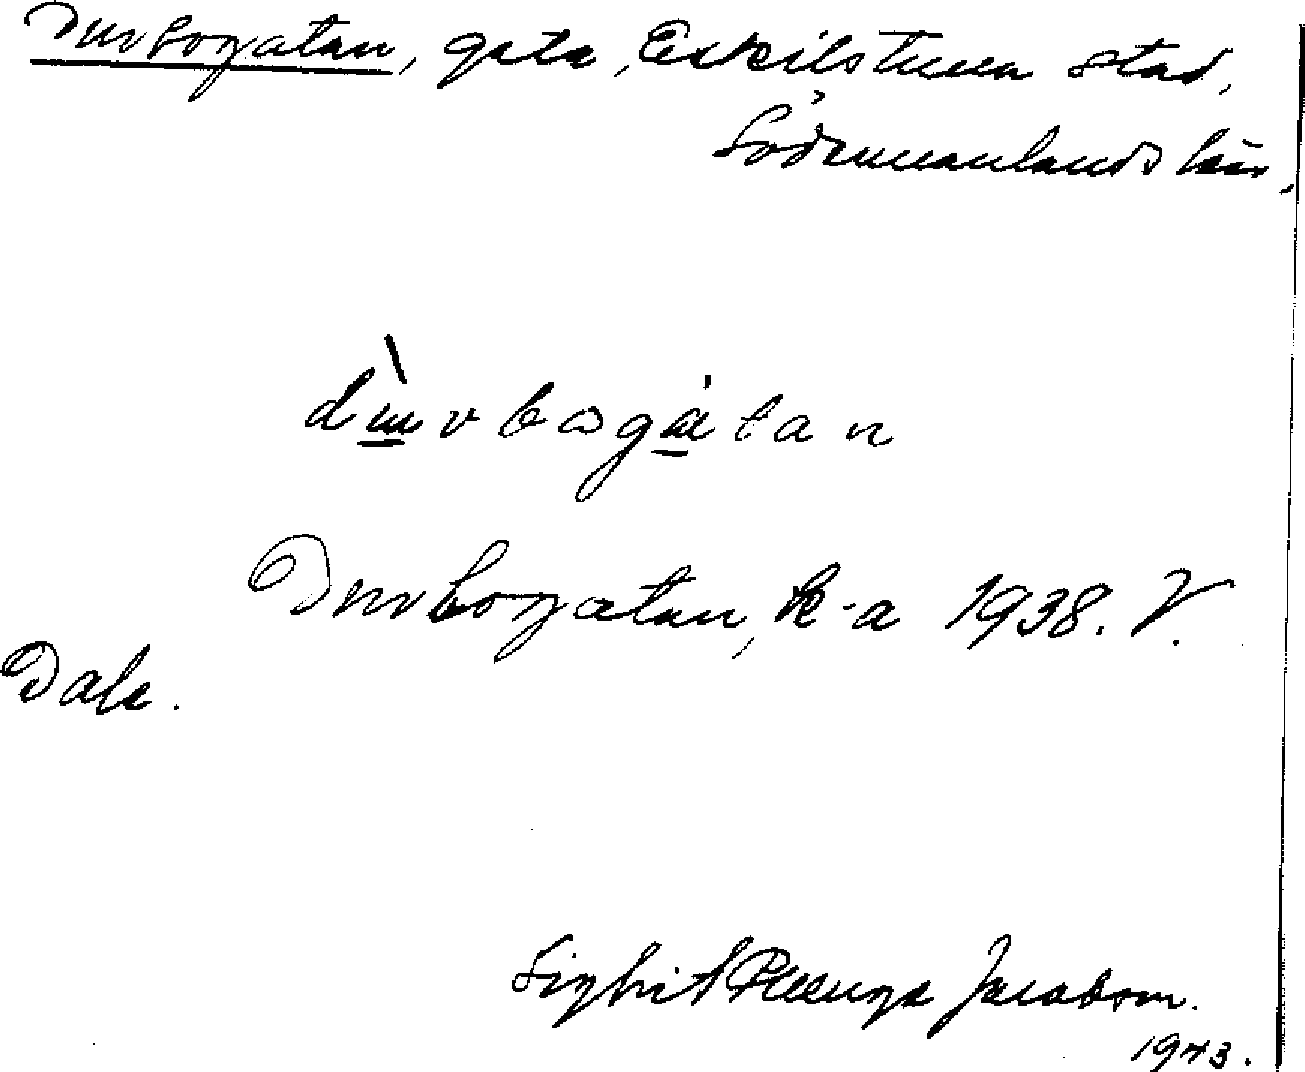 Duvbogatan, gata, Eskilstuna stad,
Södermanlands län,
duvbogatan
Duvbogatan, k-a 1938. V.
Dals.
Sigbrit Plænge Jacobson.
1943.